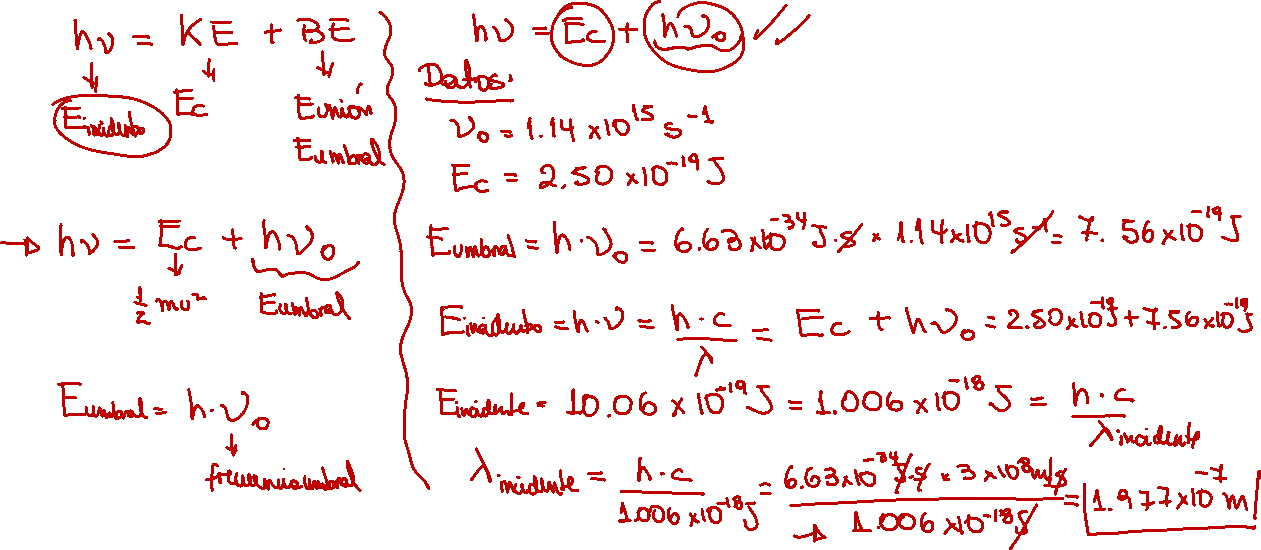 hν = KE + BE
Eincidente
Ec
Eunión
Eumbral
→ hν = Ec + hν₀
½ mv²
Eumbral
Eumbral = h·ν₀
frecuencia umbral
hν = Ec + hν₀ ✓✓
Datos:
ν₀ = 1.14 x10¹⁵ s⁻¹
Ec = 2.50 x10⁻¹⁹ J
Eumbral = h·ν₀ = 6.63 x10⁻³⁴ J·s x 1.14x10¹⁵ s⁻¹ = 7.56x10⁻¹⁹ J
Eincidente = h·ν = h·c/λ = Ec + hν₀ = 2.50x10⁻¹⁹J + 7.56x10⁻¹⁹J
Eincidente = 10.06 x 10⁻¹⁹ J = 1.006 x10⁻¹⁸ J = h·c/λincidente
λincidente = h·c/1.006 x10⁻¹⁸J = 6.63x10⁻³⁴ J·s x 3 x10⁸ m/s / → 1.006 x10⁻¹⁸ J = 1.977x10⁻⁷ m